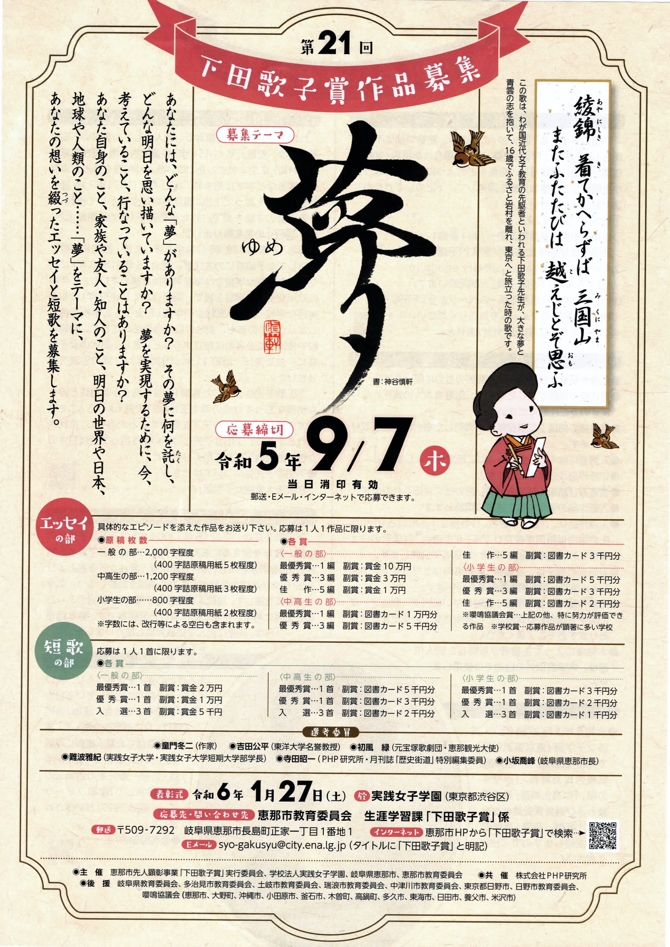 第21回
下田歌子賞作品募集
綾錦 着てかへらずば 三国山
またふたたびは 越えじとぞ思ふ
あやにしき き みくにやま
こ おも
この歌は、わが国近代女子教育の先駆者といわれる下田歌子先生が、大きな夢と
青雲の志を抱いて、16歳でふるさと岩村を離れ、東京へと旅立った時の歌です。
募集テーマ
夢
ゆめ
書：神谷慎軒
あなたには、どんな「夢」がありますか？ その夢に何を託し、
たく
どんな明日を思い描いていますか？ 夢を実現するために、今、
考えていること、行なっていることはありますか？
あなた自身のこと、家族や友人・知人のこと、明日の世界や日本、
地球や人類のこと……「夢」をテーマに、
あなたの想いを綴ったエッセイと短歌を募集します。
つづ
応募締切
令和5年9/7木
当日消印有効
郵送・Eメール・インターネットで応募できます。
エッセイの部
具体的なエピソードを添えた作品をお送り下さい。応募は1人1作品に限ります。
●原稿枚数
一般の部…2,000字程度
（400字詰原稿用紙5枚程度）
中高生の部…1,200字程度
（400字詰原稿用紙3枚程度）
小学生の部……800字程度
（400字詰原稿用紙2枚程度）
※字数には、改行等による空白も含まれます。
●各賞
〈一般の部〉
最優秀賞…1編 副賞：賞金10万円
優秀賞…3編 副賞：賞金3万円
佳作…5編 副賞：賞金1万円
〈中高生の部〉
最優秀賞…1編 副賞：図書カード1万円分
優秀賞…3編 副賞：図書カード5千円分
佳作…5編 副賞：図書カード3千円分
〈小学生の部〉
最優秀賞…1編 副賞：図書カード5千円分
優秀賞…3編 副賞：図書カード3千円分
佳作…5編 副賞：図書カード2千円分
※嚶鳴協議会賞…上記の他、特に努力が評価でき
る作品 ※学校賞…応募作品が顕著に多い学校
短歌の部
応募は1人1首に限ります。
●各賞
〈一般の部〉
最優秀賞…1首 副賞：賞金2万円
優秀賞…1首 副賞：賞金1万円
入選…3首 副賞：賞金5千円
〈中高生の部〉
最優秀賞…1首 副賞：図書カード5千円分
優秀賞…1首 副賞：図書カード3千円分
入選…3首 副賞：図書カード2千円分
〈小学生の部〉
最優秀賞…1首 副賞：図書カード3千円分
優秀賞…1首 副賞：図書カード2千円分
入選…3首 副賞：図書カード1千円分
選考委員
●童門冬二（作家） ●吉田公平（東洋大学名誉教授） ●初風 緑（元宝塚歌劇団・恵那観光大使）
●難波雅紀（実践女子大学・実践女子大学短期大学部学長） ●寺田昭一（PHP研究所・月刊誌「歴史街道」特別編集委員） ●小坂喬峰（岐阜県恵那市長）
表彰式 令和6年1月27日（土） 於 実践女子学園（東京都渋谷区）
応募先・問い合わせ先 恵那市教育委員会 生涯学習課「下田歌子賞」係
郵送 〒509-7292 岐阜県恵那市長島町正家一丁目1番地1 インターネット 恵那市HPから「下田歌子賞」で検索
Eメール syo-gakusyu@city.ena.lg.jp（タイトルに「下田歌子賞」と明記）
●主催 恵那市先人顕彰事業「下田歌子賞」実行委員会、学校法人実践女子学園、岐阜県恵那市、恵那市教育委員会 ●共催 株式会社PHP研究所
●後援 岐阜県教育委員会、多治見市教育委員会、土岐市教育委員会、瑞浪市教育委員会、中津川市教育委員会、東京都日野市、日野市教育委員会、
嚶鳴協議会（恵那市、大野町、沖縄市、小田原市、釜石市、木曽町、高鍋町、多久市、東海市、日田市、養父市、米沢市）